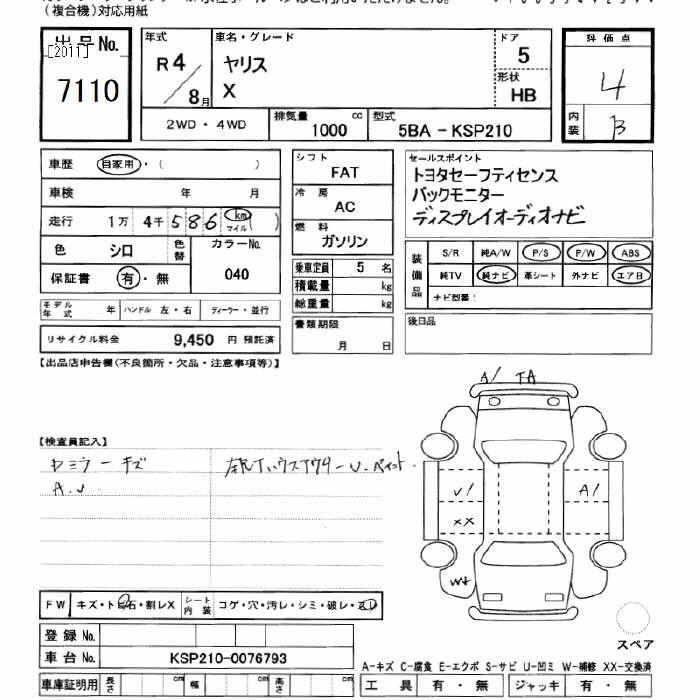 (複合機)対応用紙
出品No.
[2011]
7110
年式
R4/8月
車名・グレード
ヤリス
X
ドア
5
形状
HB
2WD・4WD
排気量
1000 cc
型式
5BA-KSP210
評価点
4
内装
B
車歴 自家用・( )
車検 年 月
走行 1万 4千 586 km マイル ( )
色 シロ 色替
カラーNo.
040
保証書 有・無
モデル年式 年 ハンドル 左・右 ディーラー・並行
リサイクル料金 9,450 円 預託済
シフト
FAT
冷房
AC
燃料
ガソリン
乗車定員 5 名
積載量 kg
総重量 kg
書類期限
月 日
セールスポイント
トヨタセーフティセンス
バックモニター
ディスプレイオーディオナビ
装備品
S/R 純A/W P/S P/W ABS
純TV 純ナビ 革シート 外ナビ エアB
ナビ型番:
後日品
【出品店申告欄(不良箇所・欠品・注意事項等)】
【検査員記入】
A.U
FW キズ・トビ石・割レX シート内装 コゲ・穴・汚レ・シミ・破レ・スレ
登録No.
車台No. KSP210-0076793
車庫証明用 長さ cm 幅 cm 高さ cm
A/ FA
U/
A/
XX
W+
スペア
A-キズ C-腐食 E-エクボ S-サビ U-凹ミ W-補修 XX-交換済
工具 有・無 ジャッキ 有・無